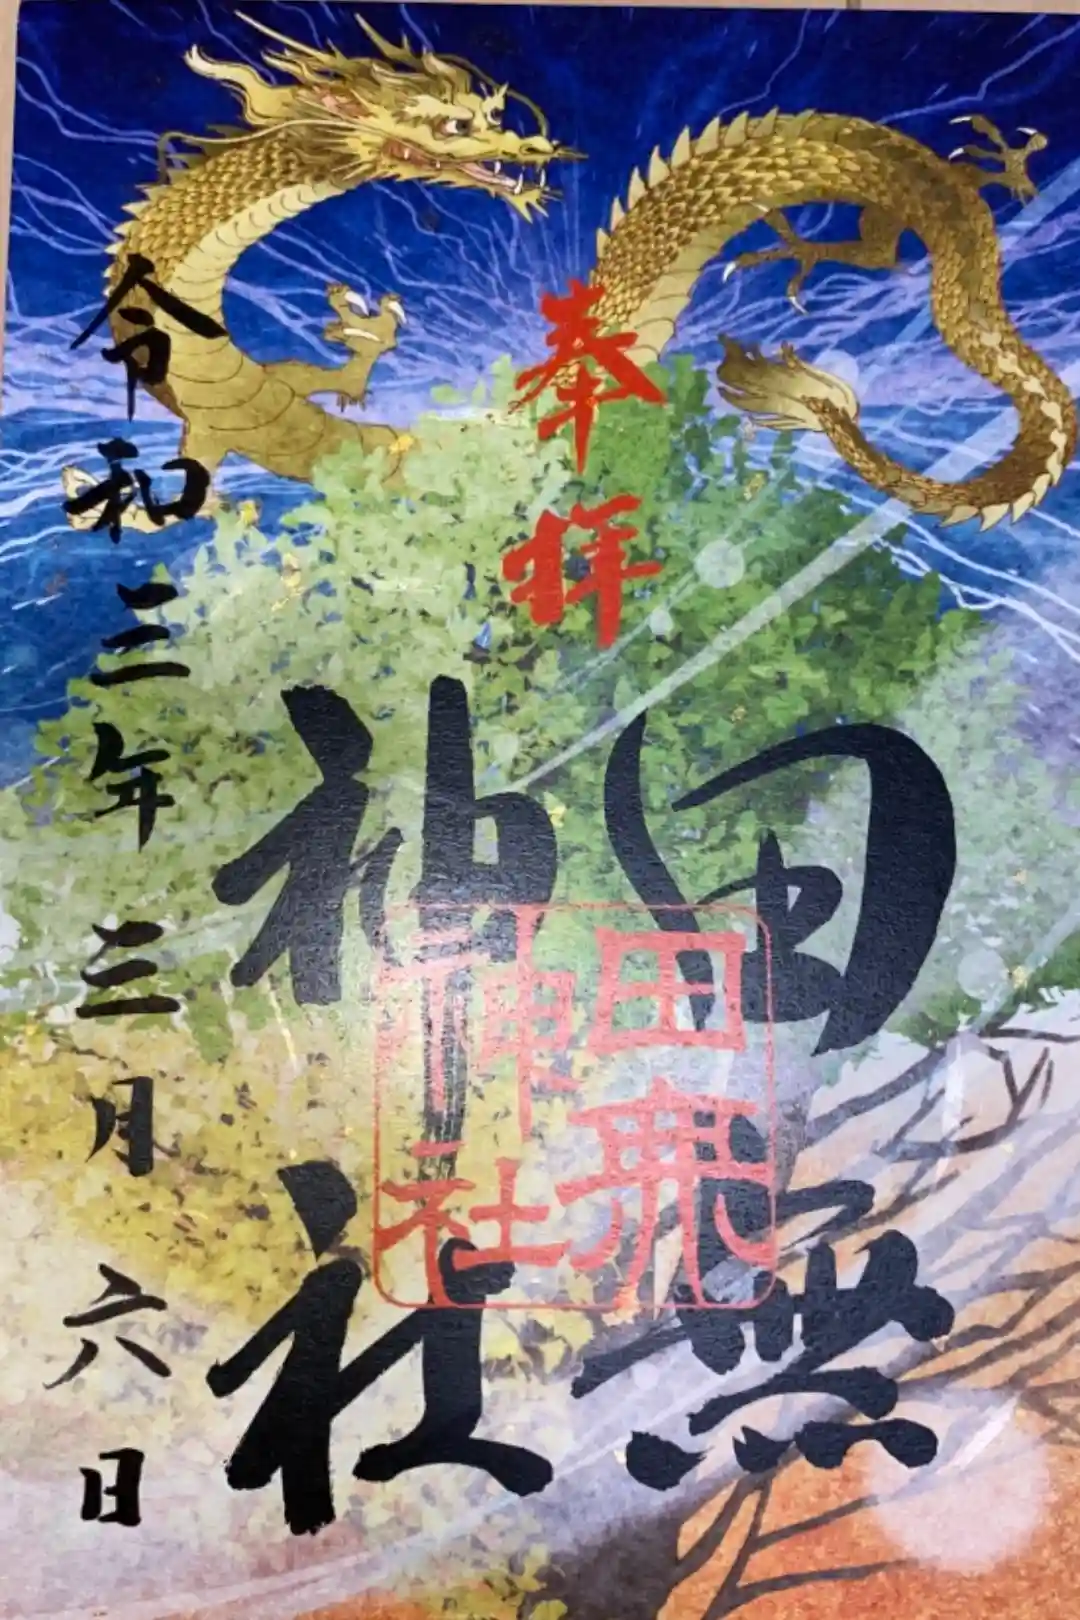 奉拝
田無
神社
田無
神社
令和三年三月六日